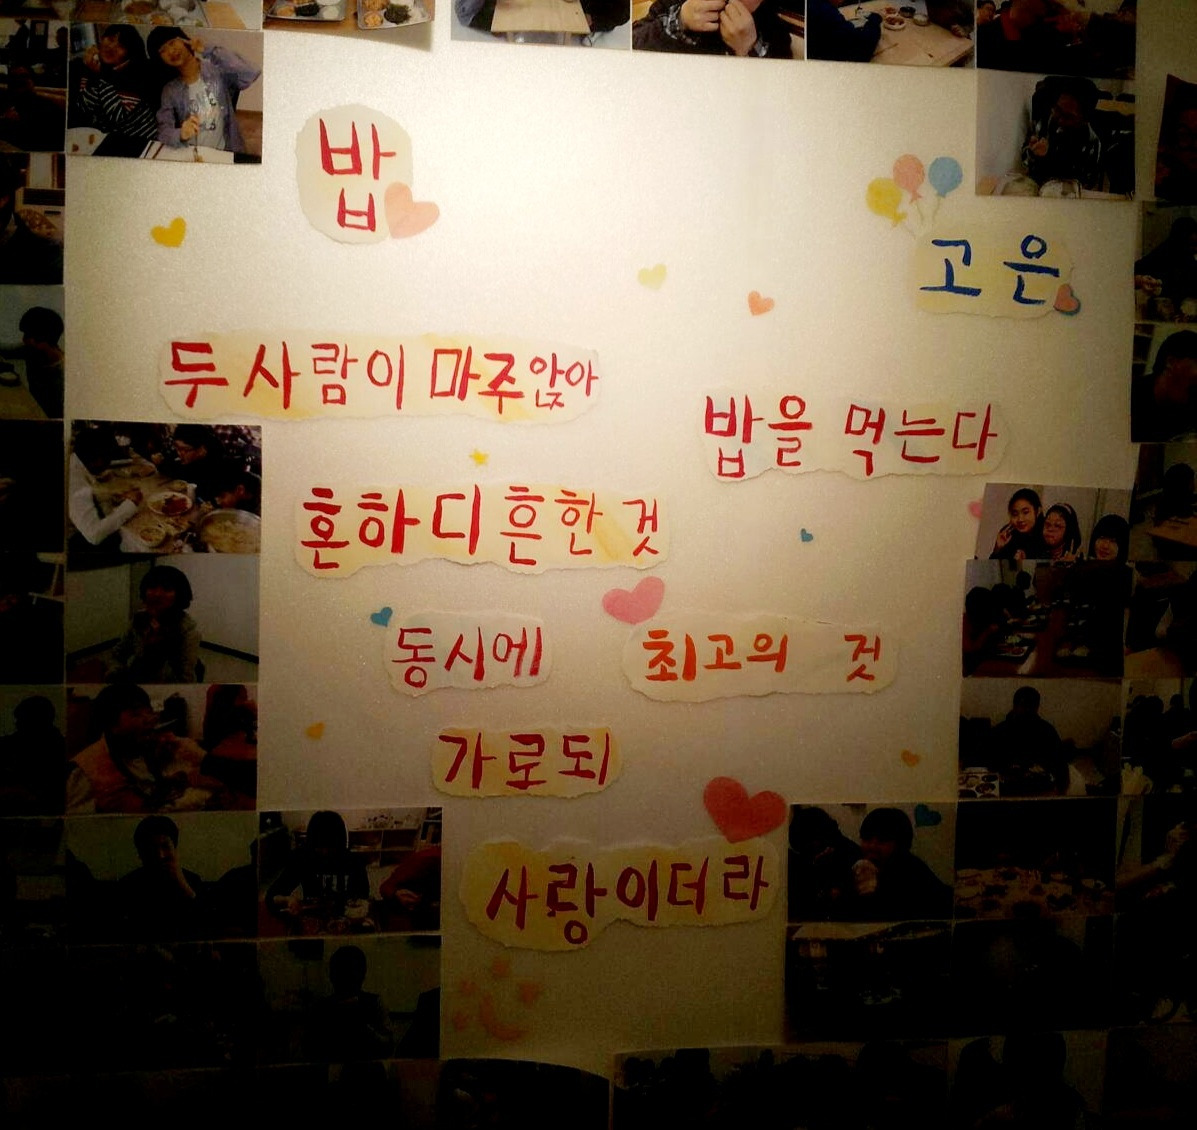 밥
고 은
두 사람이 마주앉아
밥을 먹는다
흔하디 흔한 것
동시에 최고의 것
가로되
사랑이더라